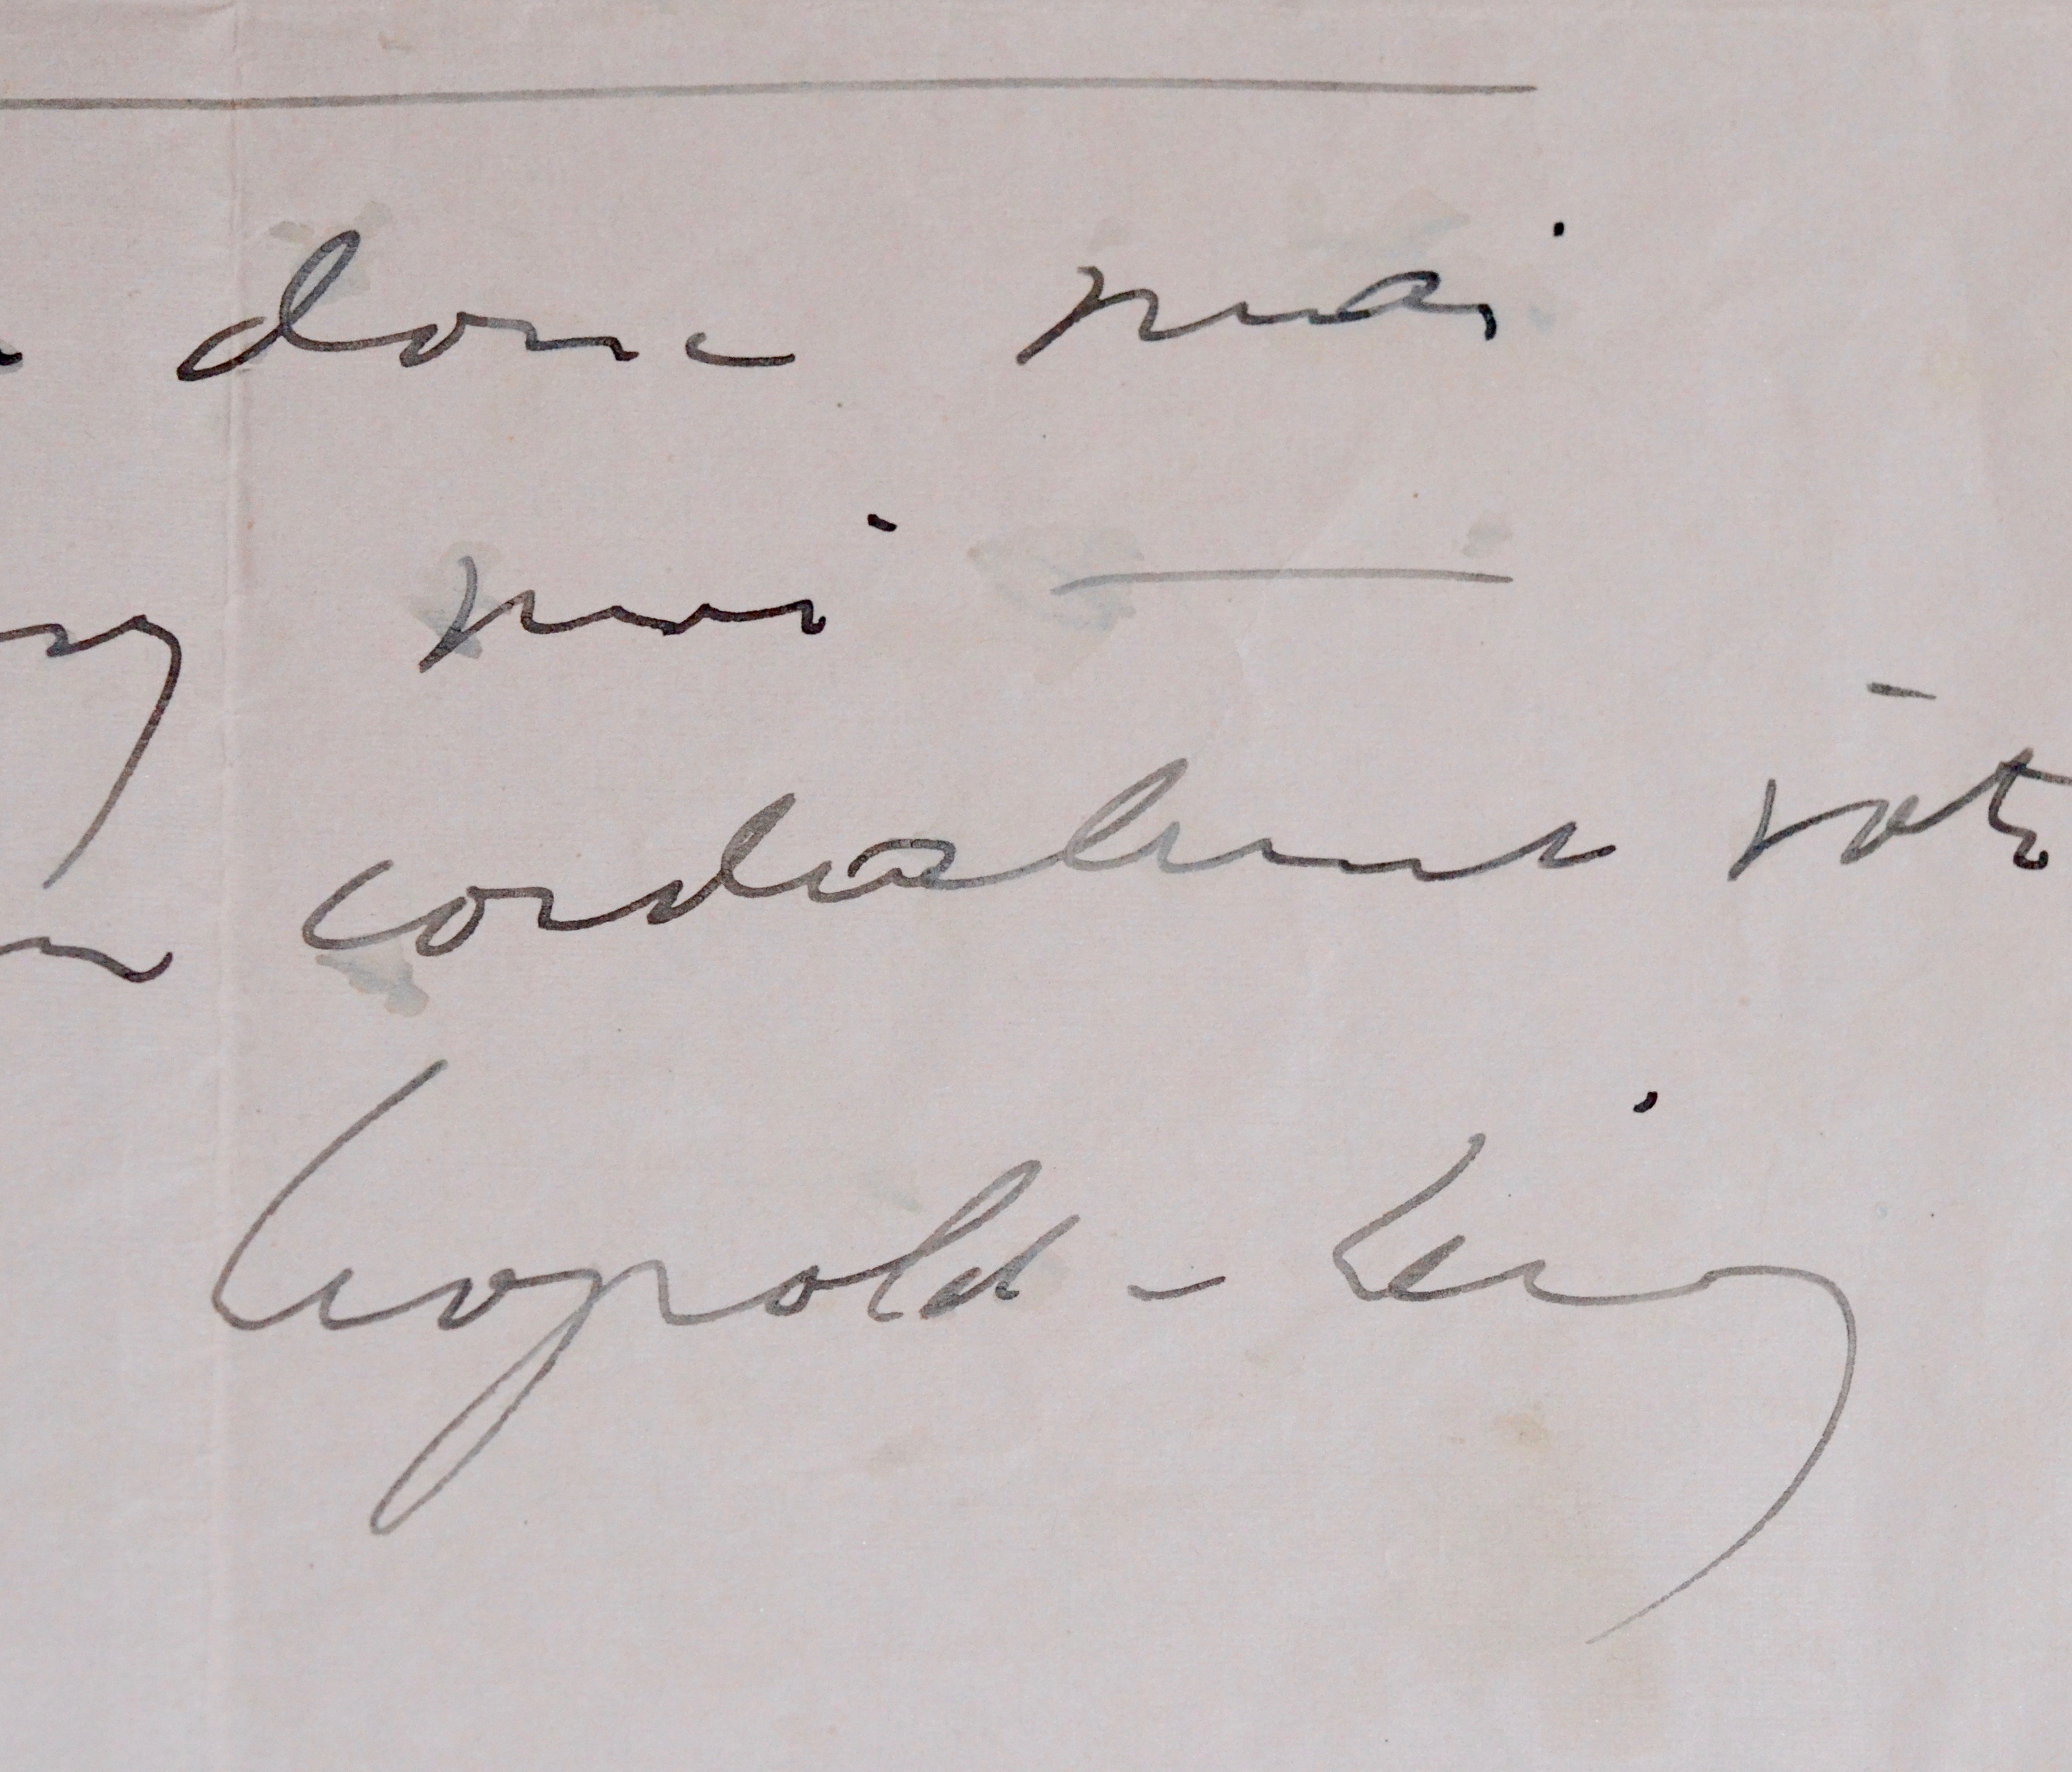 donc mai
moi —
cordialement vôtre
Leopold-Levy